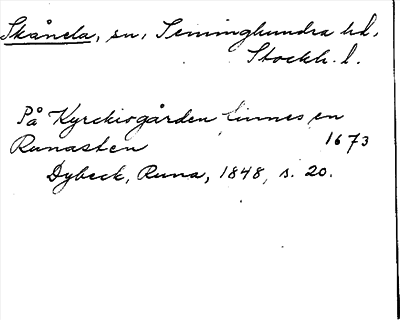 Skånela, sn, Seminghundra hd,
Stockh. l.
På Kyrckiogården finnes en
Runasten 1673
Dybeck, Runa, 1848, s. 20.